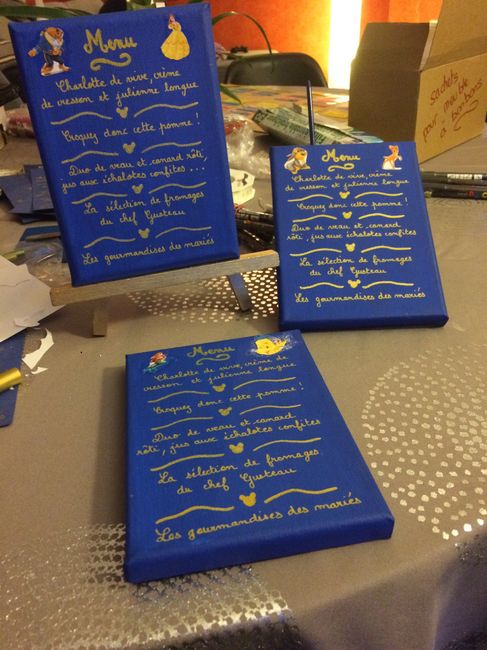 Menu
Charlotte de vive, crème
de cresson et julienne longue
Croquez donc cette pomme !
Duo de veau et canard rôti,
jus aux échalotes confites...
La sélection de fromages
du chef Gusteau
Les gourmandises des mariés
Menu
Charlotte de vive, crème
de cresson et julienne longue
Croquez donc cette pomme !
Duo de veau et canard
rôti, jus aux échalotes confites
La sélection de fromages
du chef Gusteau
Les gourmandises des mariés
Menu
Charlotte de vive, crème de
cresson et julienne longue
Croquez donc cette pomme !
Duo de veau et canard
rôti, jus aux échalotes confites
La sélection de fromages
du chef Gusteau
Les gourmandises des mariés
sachets
pour meuble
a bonbons